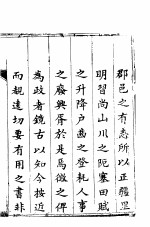 郡邑之有志所以正疆里
明習尚山川之阨塞田賦
之升降戶畝之登耗人事
之廢興胥於是焉徵之俾
為政者鏡古以知今按近
而親遠切要有用之書非